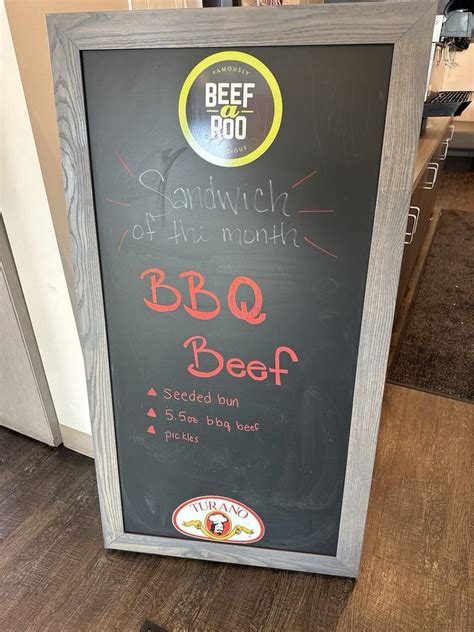 FAMOUSLY
BEEF
a
ROO
DELICIOUS
Sandwich
of the month
BBQ
Beef
Seeded bun
5.5oz bbq beef
pickles
TURANO